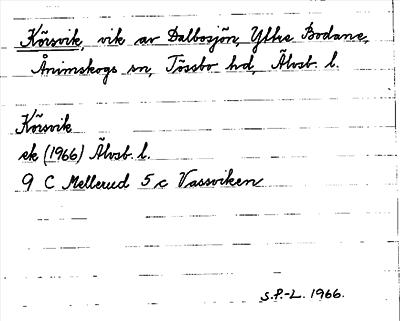 Körsvik, vik av Dalbosjön, Yttre Bodane,
Ånimskogs sn, Tössbo hd, Älvsb. l.
Körsvik
ek (1966) Älvsb. l.
9 C Mellerud 5 c Vassviken
S.F.-L. 1966.